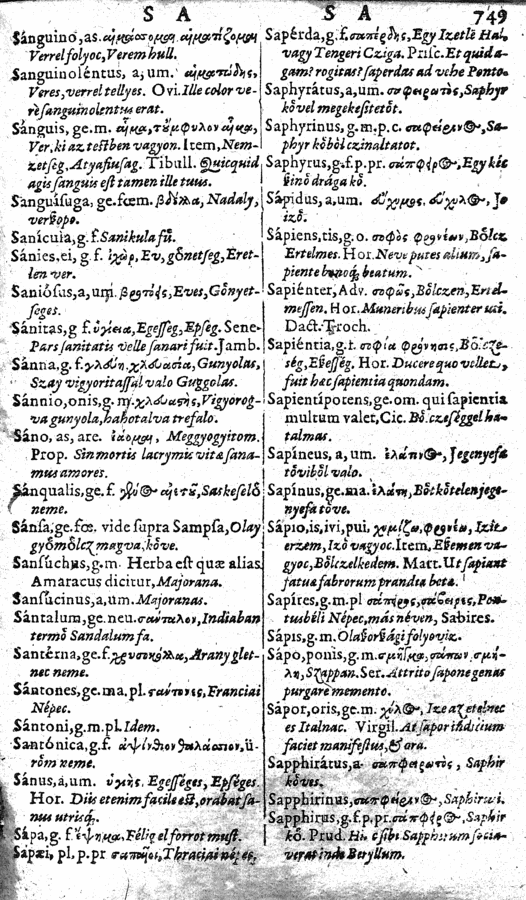 S A
Sánguino, as. αἱμάσσομαι, αἱματίζομαι
Verrel folyoc, Verem hull.
Sanguinoléntus, a, um. αἱματώδης,
Veres, verrel tellyes. Ovi. Ille color ve-
rè sanguinolentus erat.
Sánguis, ge. m. αἷμα,
Ver, ki az testben vagyon. Item, Nem-
zetseg, Atyafiusag. Tibull. Quicquid
agis sanguis est tamen ille tuus.
Sanguísuga, ge. fœm. βδέλλα, Nadaly,
verßopo.
Sanícula, g. f. Sanikula fű.
Sánies, ei, g. f. ἰχὼρ, Ev, gőnetseg, Eret-
len ver.
Sanióſus, a, um. Eves, Gőnyet-
seges.
Sánitas, g f. ὑγίεια, Egesseg, Epseg. Sene.
Pars sanitatis velle sanari fuit. Jamb.
Sánna, g. f. χλεύη. χλευασία, Gunyolas,
Szay vigyoritassal valo Guggolas.
Sánnio, onis, g. m. χλευαστὴς, Vigyorog-
va gunyola, hahotalva trefalo.
Sáno, as, are. ἰάομαι, Meggyogyitom.
Prop. Sin mortis lacrymis vitæ sana-
mus amores.
Sánqualis, ge. f. Saskeselő
neme.
Sánsa, ge. fœ. vide supra Sampsa, Olay
győmőlcz magva, kőve.
Sansúchus, g. m. Herba est quæ alias
Amaracus dicitur, Majorana.
Sansúcinus, a, um. Majoranas.
Sántalum, ge. neu. σάνταλον, Indiaban
termő Sandalum fa.
Santérna, ge. f. χρυσοκόλλα, Arany glet-
nec neme.
Sántones, ge. ma, pl. σάντονες, Franciai
Népec.
Sántoni, g. m. pl. Idem.
Santónica, g. f. ἀψίνθιον θαλάσσιον, ű-
rőm neme.
Sánus, a, um. ὑγιὴς. Egességes, Epséges
Hor. Diis etenim facile est, orabat sa-
nus utrisq́;
Sápa, g. f. ἕψημα. Félig el forrot must.
Sápæi, pl, p. pr σαπαῖοι, Thraciai népec.
S A
749
Sapérda, g. f. σαπέρδης, Egy Izetlē Hal,
vagy Tengeri Cziga. Prisc. Et quid a-
gam? rogitas? saperdas ad vehe Ponto.
Saphyrátus, a, um. Saphyr
kővel megekesitetőt.
Saphyrinus, g. m. p. c. Sa-
phyr kőből czinaltatot.
Saphyrus, g. f. p. pr. Egy kéc
ßinő drága kő.
Sápidus, a, um. Jo
iző.
Sápiens, tis, g. o. σοφὸς φρονέων, Bőlcz
Ertelmes. Hor. Neve putes alium, sa-
piente bonoq́; beatum.
Sapiénter, Adv. σοφῶς, Bőlczen, Ertel-
messen. Hor. Muneribus sapienter uti.
Dact. Troch.
Sapiéntia, g. f. σοφία φρόνησις, Bőlcze-
ség, Eßesség. Hor. Ducere quo vellet,
fuit hec sapientia quondam.
Sapientípotens, ge. om. qui sapientia
multum valet, Cic. Bőlczeséggel ha-
talmas.
Sapíneus, a, um. Jegenyefa
tőviből valo.
Sapínus, ge. ma. ἐλάτη, Bőtkőtelen jege-
nyefa tőve.
Sápio, is, ivi, pui, φρονέω, Izit
erzem, Izö vagyoc. Item, Eßemen va-
gyoc, Bőlczelkedem. Mart. Ut sapiant
fatuæ fabrorum prandia betæ.
Sapíres, g. m. pl Pon-
tusbéli Népec, más néven, Sabires.
Sápis, g. m. Olaßorßági folyoviz.
Sápo, ponis, g. m. Szappan. Ser. Attrito sapone genas
purgare memento.
Sápor, oris, ge. m. Ize az etelnec
es Italnac. Virgil. At sapor indicium
faciet manifestus, & ora.
Sapphirátus, a- Saphir
kőves.
Sapphirinus, Saphirwi.
Sapphirus, g. f. p. pr. Saphir
kő. Prud. Hic sibi Sapphirum socia-
verat inde Beryllum.